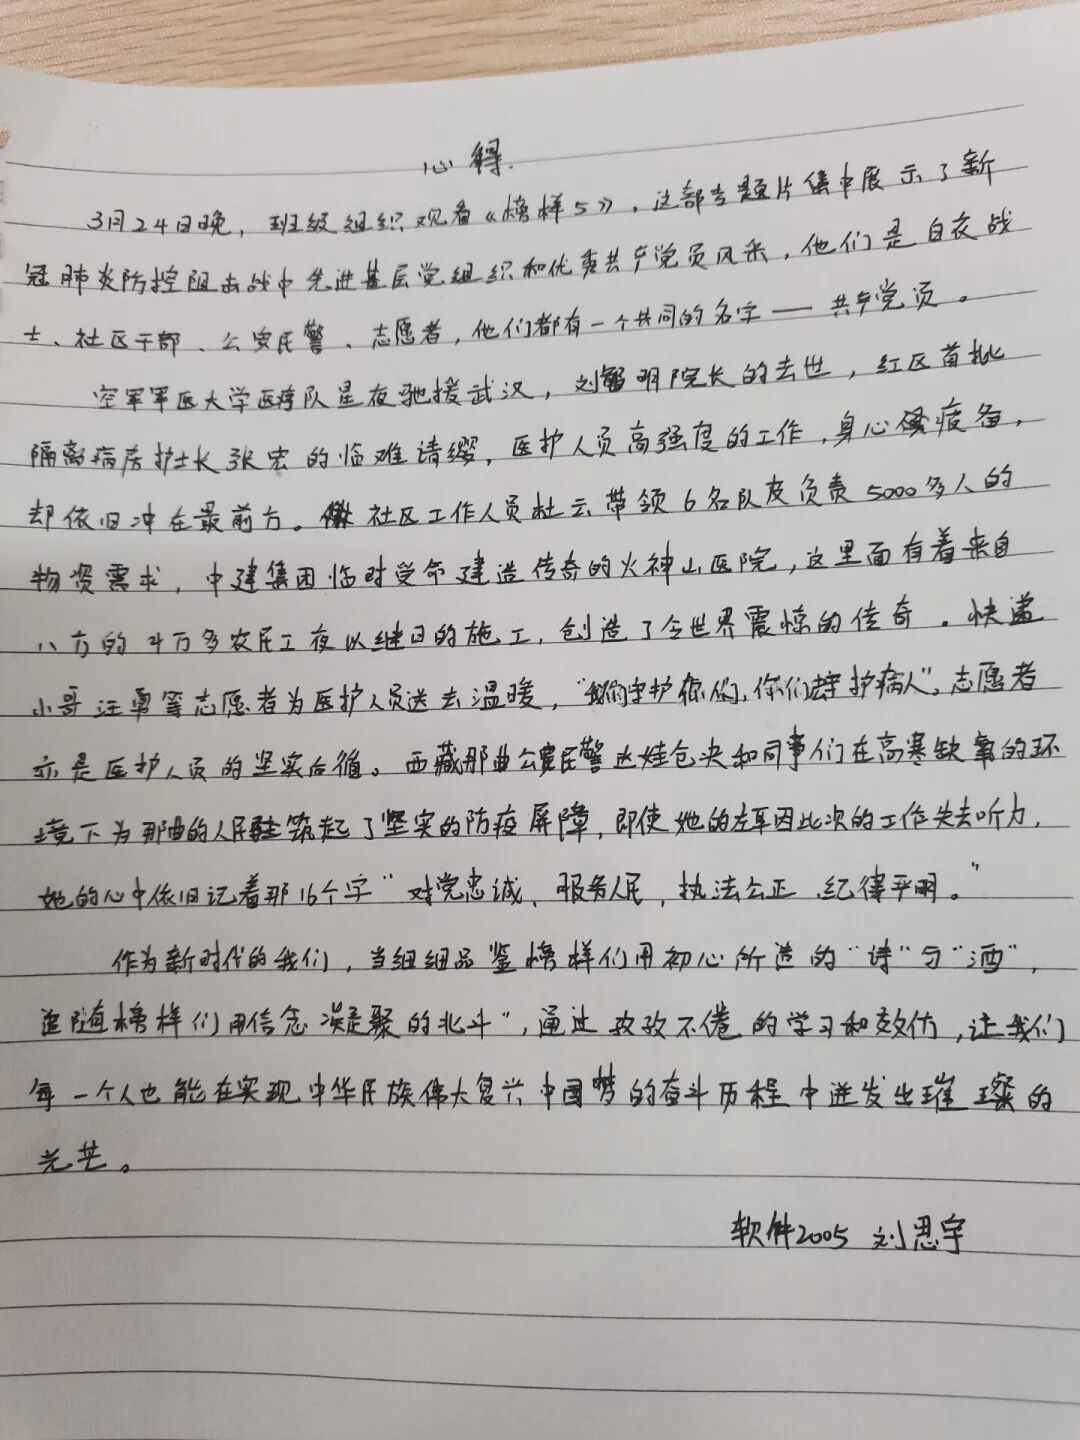 心得.
3月24日晚，班级组织观看《榜样5》，这部专题片集中展示了新
冠肺炎防控阻击战中先进基层党组织和优秀共产党员风采，他们是白衣战
士、社区干部、公安民警、志愿者，他们都有一个共同的名字——共产党员。
空军军医大学医疗队星夜驰援武汉，刘智明院长的去世，红区首批
隔离病房护士长张宏的临难请缨，医护人员高强度的工作，身心疲备，
却依旧冲在最前方。社区工作人员杜云带领6名队友负责5000多人的
物资需求，中建集团临时受命建造传奇的火神山医院，这里面有着来自
八方的4万多农民工夜以继日的施工，创造了令世界震惊的传奇。快递
小哥汪勇等志愿者为医护人员送去温暖，“我们守护你们，你们守护病人”，志愿者
亦是医护人员的坚实后循。西藏那曲公安民警达娃仓决和同事们在高寒缺氧的环
境下为那曲的人民筑起了坚实的防疫屏障，即使她的左耳因此次的工作失去听力，
她的心中依旧记着那16个字“对党忠诚、服务人民，执法公正、纪律严明。”
作为新时代的我们，当细细品鉴榜样们用初心所造的“诗”与“酒”，
追随榜样们用信念凝聚的北斗”，通过孜孜不倦的学习和效仿，让我们
每一个人也能在实现中华民族伟大复兴中国梦的奋斗历程中迸发出璀璨的
光芒。
软件2005 刘思宇